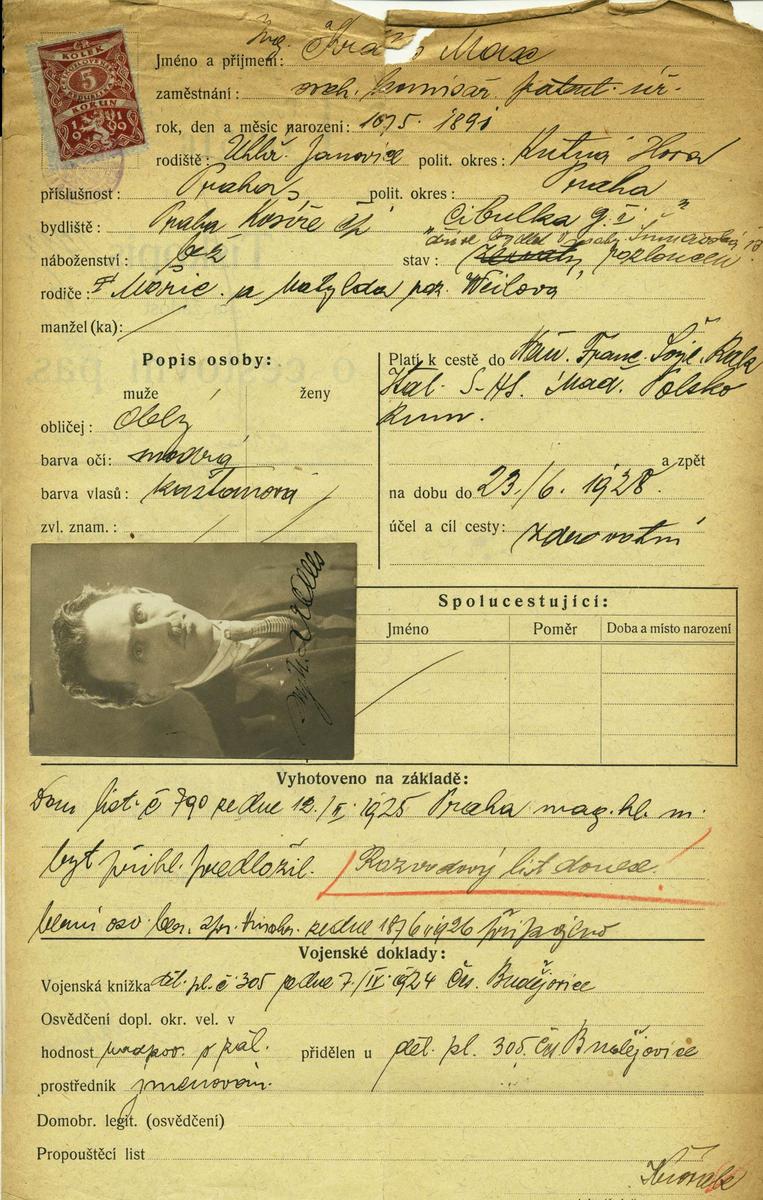 KOLEK
5
KORUN
1919
Ing. Max
Jméno a přijmení:
zaměstnání: komisař patent. úř.
rok, den a měsíc narození: 1891
rodiště: Uhlíř. Janovice polit. okres: Kutná Hora
příslušnost: Praha polit. okres: Praha
bydliště: Praha Košíře čp Cibulka
náboženství: bez stav: rozloučen
rodiče: † Mořic a Matylda roz. Weilová
manžel(ka): /
Popis osoby:
muže ženy
obličej: oblý
barva očí: modrá
barva vlasů: kaštanová
zvl. znam.:
Platí k cestě do Něm. Franc. Rak
Ital. S-HS. Maď. Polsko
Rum.
a zpět
na dobu do 23./6. 1928.
účel a cíl cesty: zdravotní
Spolucestující:
Jméno Poměr Doba a místo narození
Vyhotoveno na základě:
Dom. list. č 790 ze dne 12./II. 1925 Praha mag. hl. m.
byt přihl. předložil. Rozvodový list donese!
ze dne 1926
Vojenské doklady:
Vojenská knížka děl. pl. č 305 ze dne 7./IV. 1924 Čes. Budějovice
Osvědčení dopl. okr. vel. v
hodnost nadpor. v zál. přidělen u děl. pl. 305. Čes Budějovice
prostředník jmenován.
Domobr. legit. (osvědčení)
Propouštěcí list